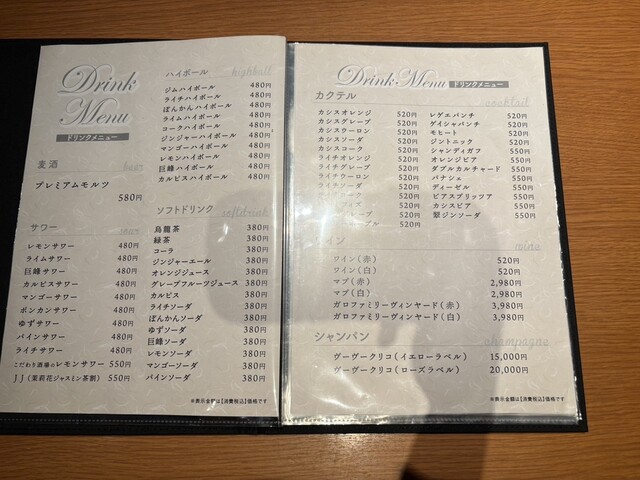 Drink
Menu
ドリンクメニュー
麦酒 beer
プレミアムモルツ
580円
サワー sour
レモンサワー 480円
ライムサワー 480円
巨峰サワー 480円
カルピスサワー 480円
マンゴーサワー 480円
ポンカンサワー 480円
ゆずサワー 480円
パインサワー 480円
ライチサワー 480円
こだわり酒場のレモンサワー 550円
JJ(茉莉花ジャスミン茶割) 550円
ハイボール highball
ジムハイボール 480円
ライチハイボール 480円
ぽんかんハイボール 480円
ライムハイボール 480円
コークハイボール 480円
ジンジャーハイボール 480円
マンゴーハイボール 480円
レモンハイボール 480円
巨峰ハイボール 480円
カルピスハイボール 480円
ソフトドリンク softdrink
烏龍茶 380円
緑茶 380円
コーラ 380円
ジンジャーエール 380円
オレンジジュース 380円
グレープフルーツジュース 380円
カルピス 380円
ライチソーダ 380円
ぽんかんソーダ 380円
ゆずソーダ 380円
巨峰ソーダ 380円
レモンソーダ 380円
マンゴーソーダ 380円
パインソーダ 380円
※表示金額は【消費税込】価格です
Drink Menu ドリンクメニュー
カクテル cocktail
カシスオレンジ 520円
カシスグレープ 520円
カシスウーロン 520円
カシスソーダ 520円
カシスコーク 520円
ライチオレンジ 520円
ライチグレープ 520円
ライチウーロン 520円
ライチソーダ 520円
520円
520円
520円
520円
レゲエパンチ 520円
ゲイシャパンチ 520円
モヒート 520円
ジントニック 520円
シャンディガフ 550円
オレンジビア 550円
ダブルカルチャード 550円
パナシェ 550円
ディーゼル 550円
ビアスプリッツア 550円
カシスビア 550円
翠ジンソーダ 550円
ワイン wine
ワイン(赤) 520円
ワイン(白) 520円
マブ(赤) 2,980円
マブ(白) 2,980円
ガロファミリーヴィンヤード(赤) 3,980円
ガロファミリーヴィンヤード(白) 3,980円
シャンパン champagne
ヴーヴークリコ(イエローラベル) 15,000円
ヴーヴークリコ(ローズラベル) 20,000円
※表示金額は【消費税込】価格です